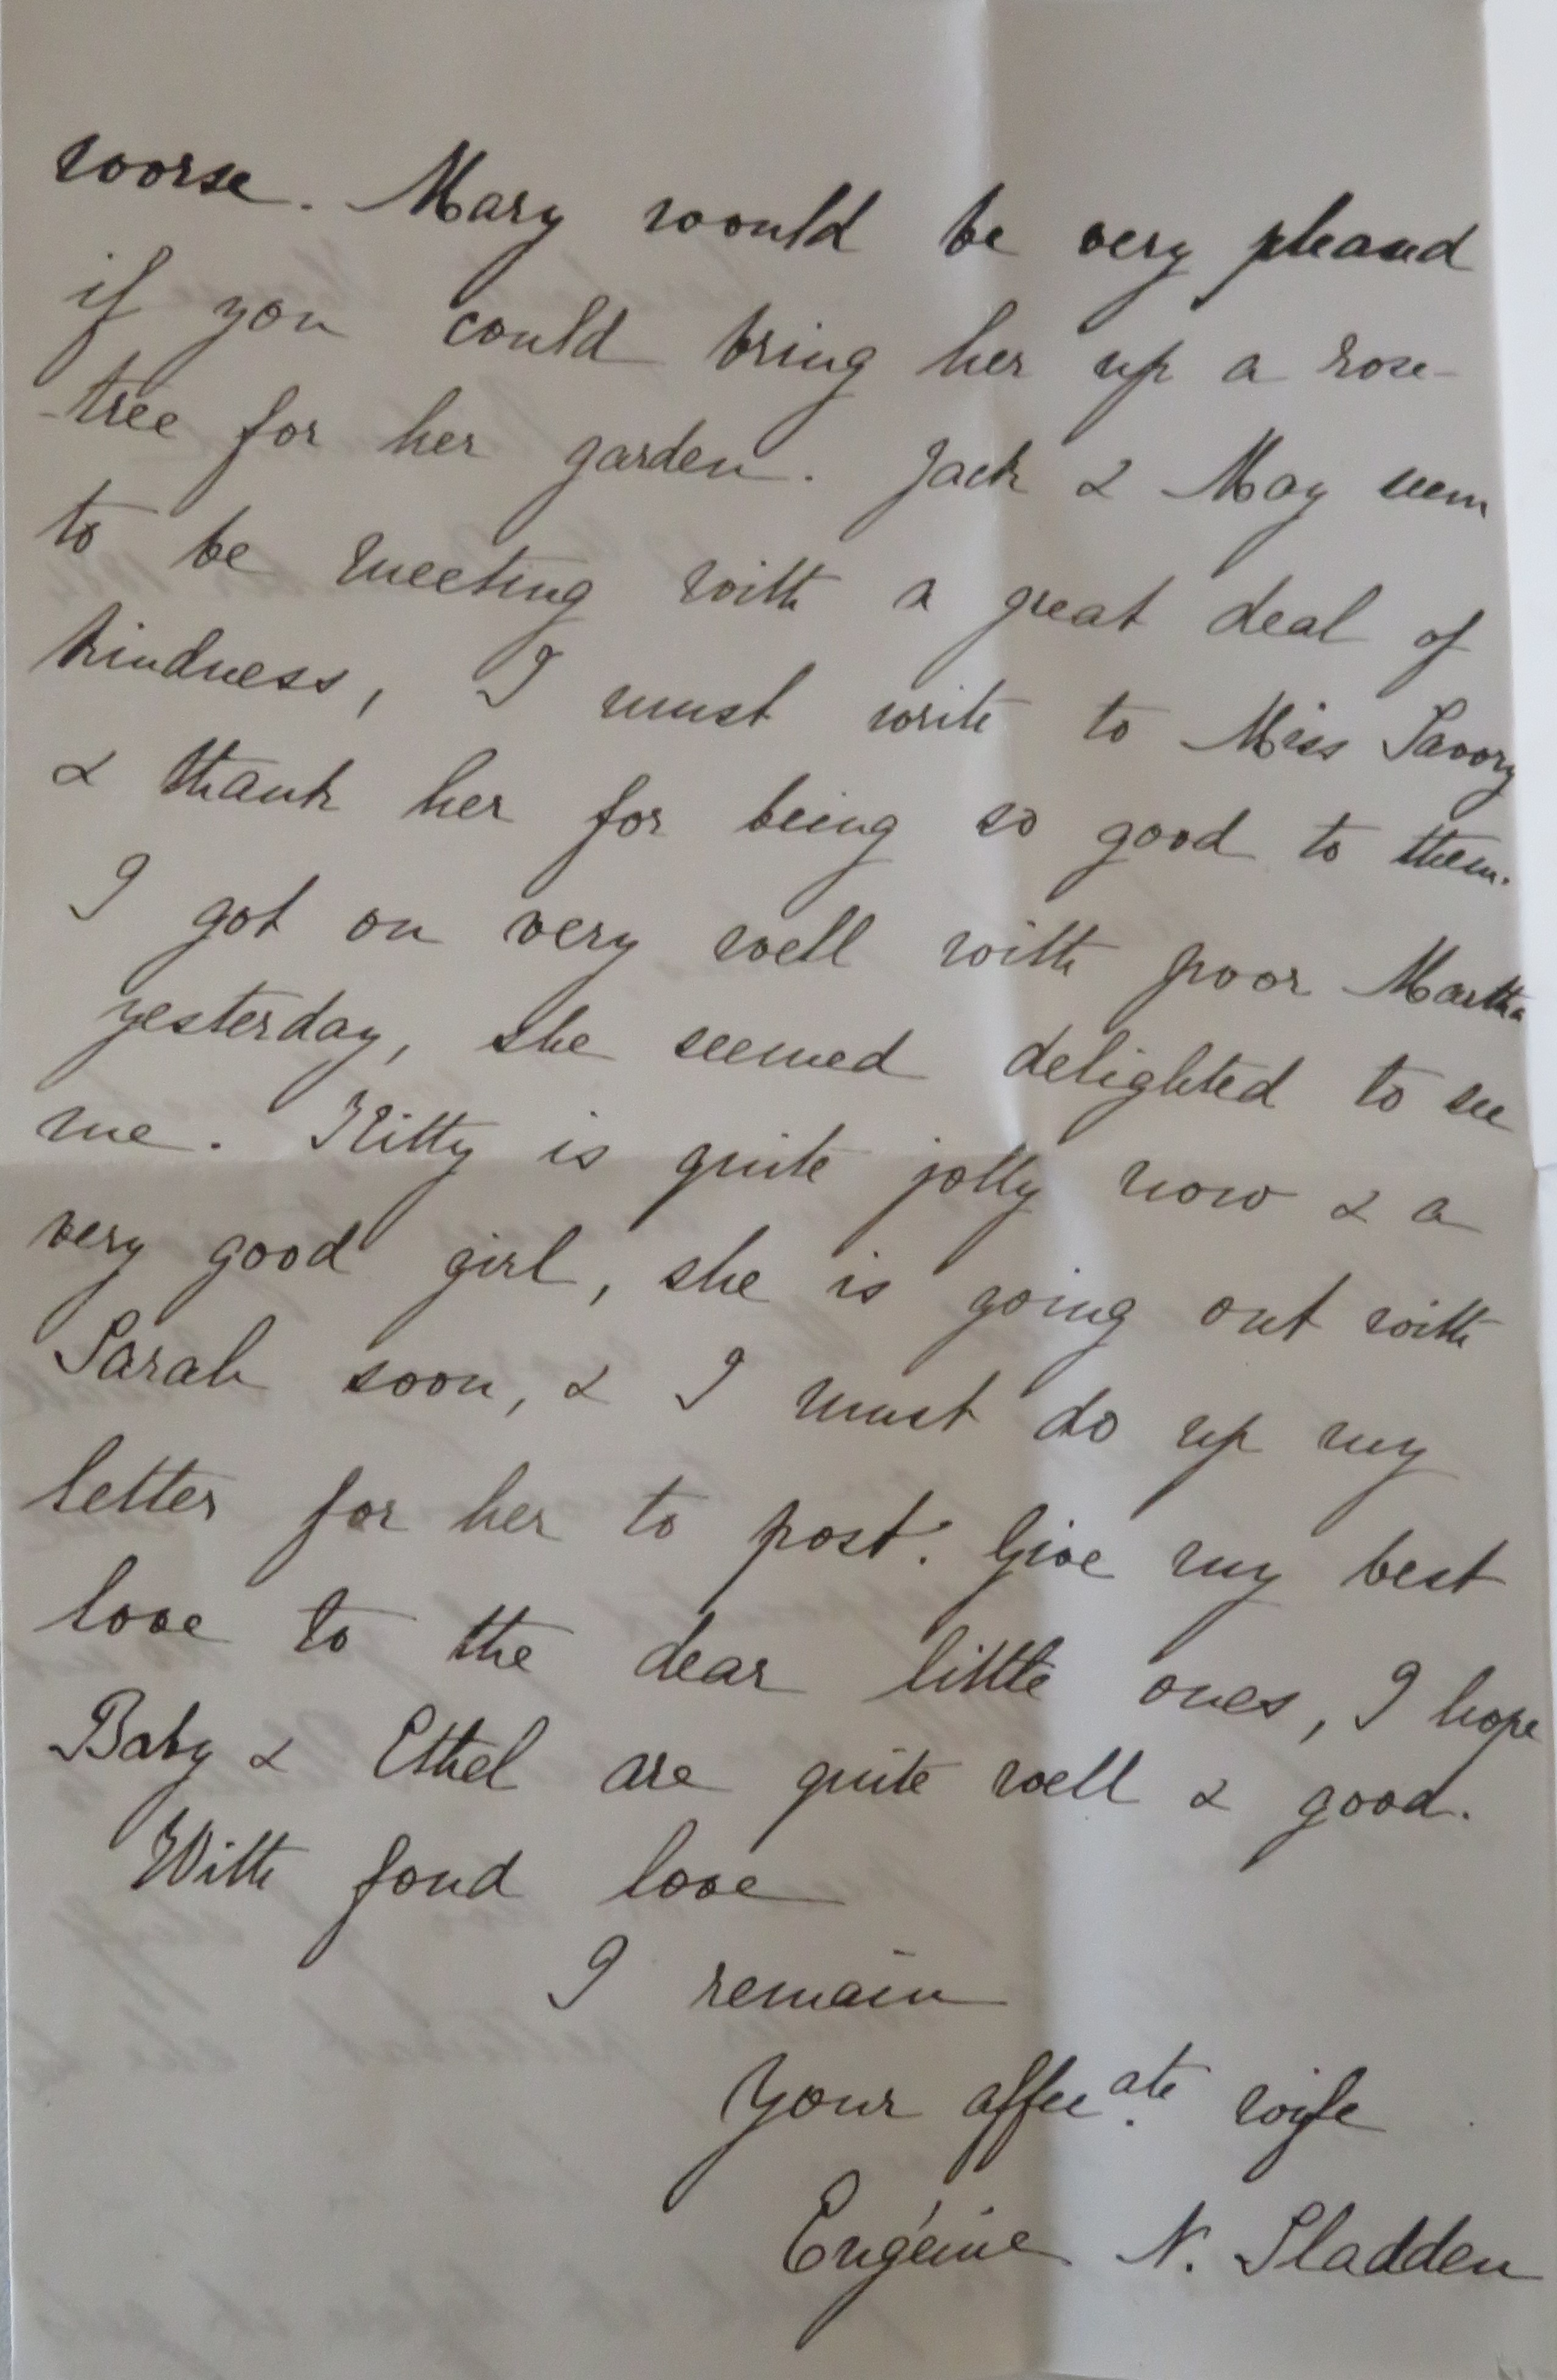 worse. Mary would be very pleased
if you could bring her up a rose-
-tree for her garden. Jack & May seem
to be meeting with a great deal of
kindness, I must write to Miss Savory
& thank her for being so good to them.
I got on very well with poor Martha
yesterday, she seemed delighted to see
me. Kitty is quite jolly now & a
very good girl, she is going out with
Sarah soon, & I must do up my
letter for her to post. Give my best
love to the dear little ones, I hope
Baby & Ethel are quite well & good.
With fond love
I remain
Your affecate wife
Eugénie N. Sladden